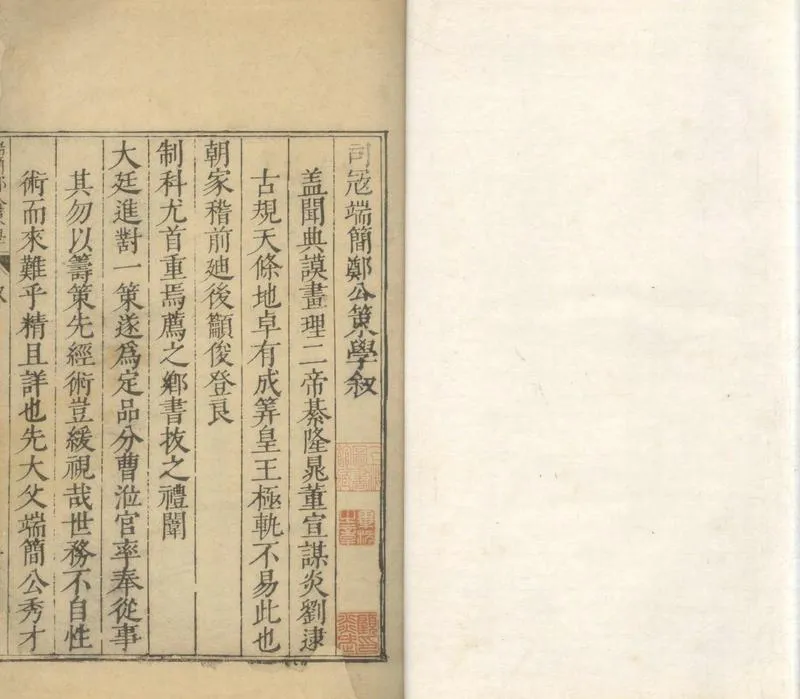 司冦端簡鄭公策學叙
盖聞典謨畫理二帝綦隆晁董宣謀炎劉逮
古規天條地卓有成筭皇王極軌不易此也
朝家稽前廸後籲俊登良
制科尤首重焉薦之鄉書拔之禮闈
大廷進對一策遂爲定品分曹涖官率奉從事
其勿以籌策先經術豈緩視哉世務不自性
術而來難乎精且詳也先大父端簡公秀才